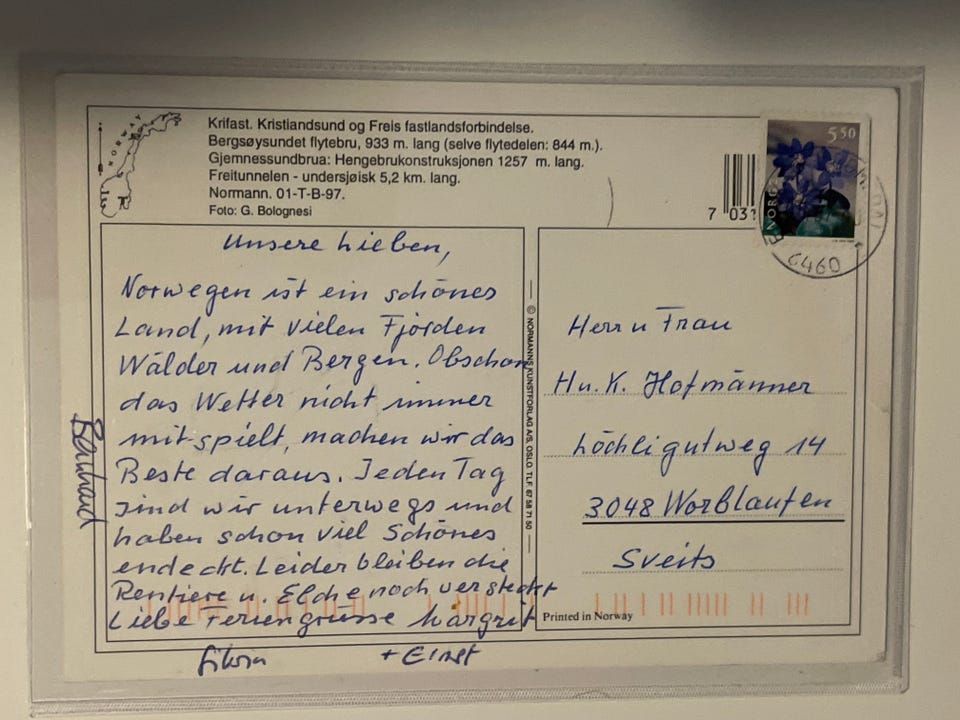 NORWAY
Krifast. Kristiandsund og Freis fastlandsforbindelse.
Bergsøysundet flytebru, 933 m. lang (selve flytedelen: 844 m.).
Gjemnessundbrua: Hengebrukonstruksjonen 1257 m. lang.
Freitunnelen - undersjøisk 5,2 km. lang.
Normann. 01-T-B-97.
Foto: G. Bolognesi
7 031
5 50
NORGE
6460
Unsere Lieben,
Norwegen ist ein schönes
Land, mit vielen Fjorden
Wälder und Bergen. Obschon
das Wetter nicht immer
mit-spielt, machen wir das
Beste daraus. Jeden Tag
sind wir unterwegs und
haben schon viel Schönes
endeckt. Leider bleiben die
Rentiere u. Elche noch versteckt
Liebe Feriengrüsse Margrit
+ Ernst
© NORMANNS KUNSTFORLAG A/S, OSLO. TLF. 67 58 71 50
Herr u Frau
Hn. K. Hofmänner
Löchligutweg 14
3048 Worblaufen
Sveits
Printed in Norway